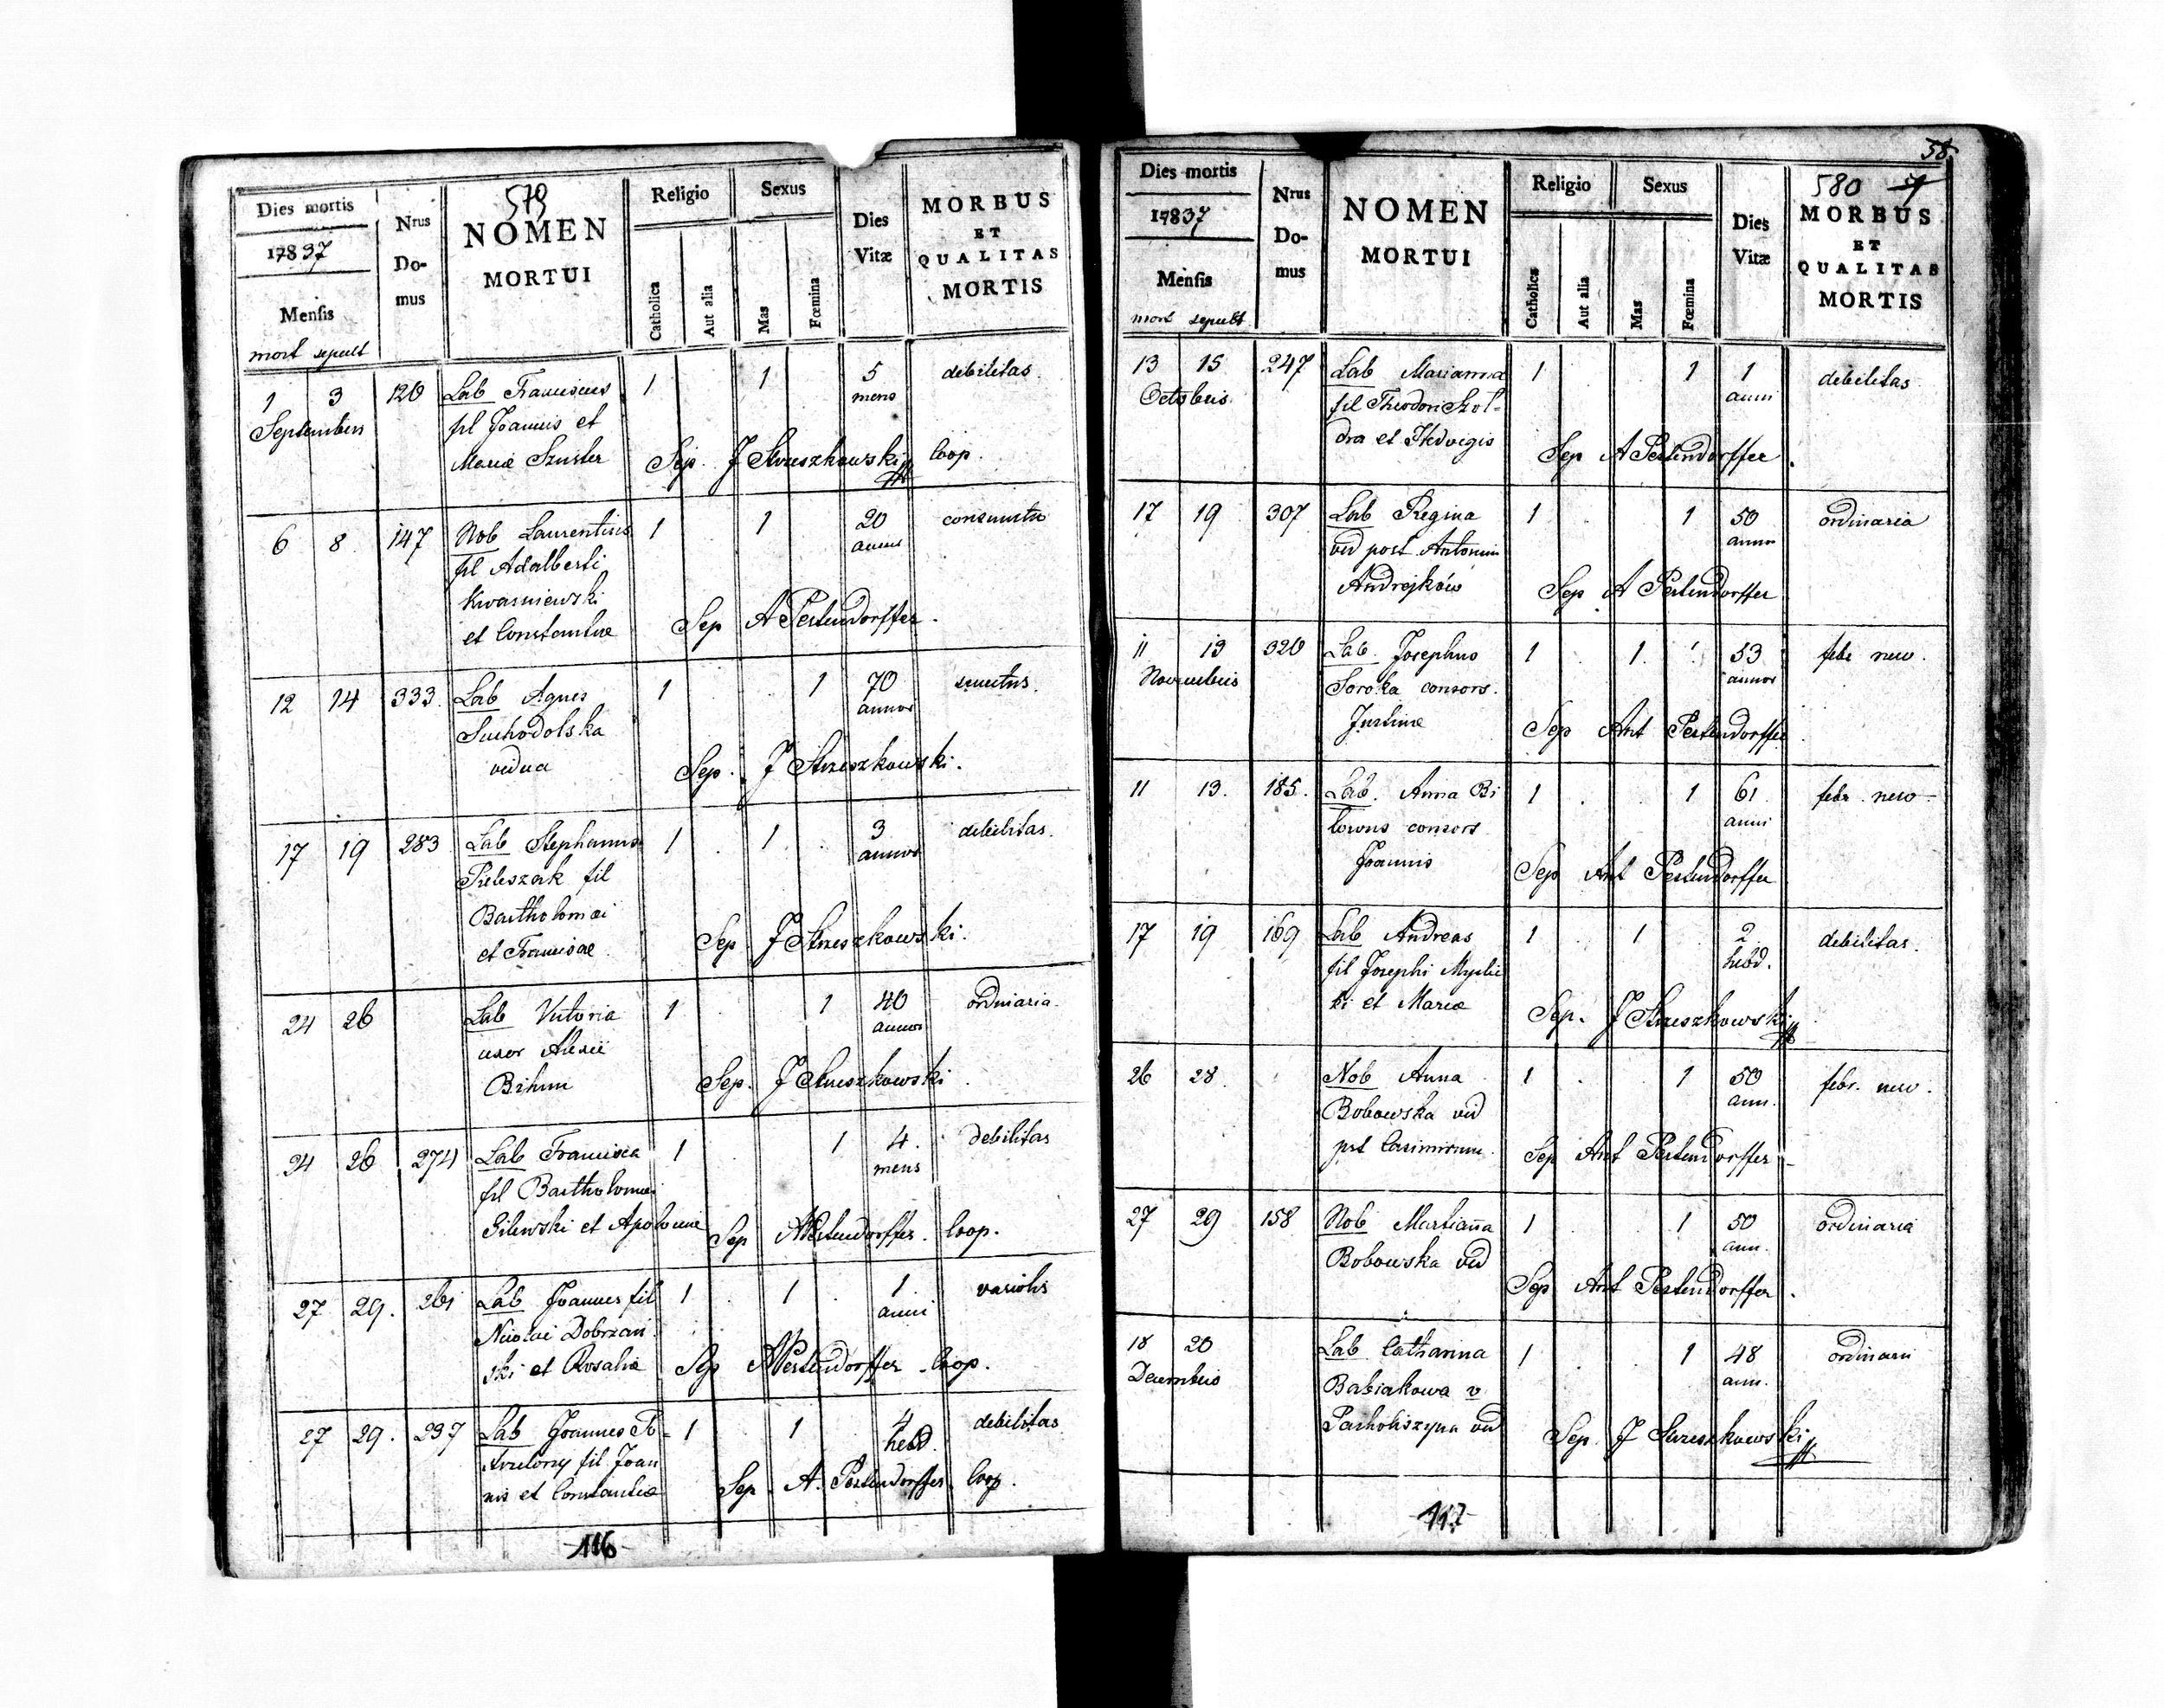 579
Dies mortis
17837
Mensis
mort sepult
Nrus
Do-
mus
NOMEN
MORTUI
Religio
Catholica
Aut alia
Sexus
Mas
Fœmina
Dies
Vitæ
MORBUS
ET
QUALITAS
MORTIS
1 3 120 Lab Franciscus 1 1 5 debilitas.
Septembris fil Joannis et mens
Mariæ Szuster Sep. J Strzeszkowski Coop.
6 8. 147 Nob Laurentius 1 1 20 consumtio
fil Adalberti annor
Kwasniewski
et Constantiæ Sep A Pertendorffer.
12 14 333. Lab Agnes 1 1 70 senectus.
Suchodolska annor
vidua Sep. J Strzeszkowski.
17 19 283 Lab Stephanus 1 1 3 debilitas.
Pieleszak fil annor
Bartholomæi
et Franciscae Sep J Strzeszkowski.
24 26 Lab Victoria 1 1 40 ordinaria.
uxor Alexii annor
Bihun Sep. J Strzeszkowski.
24 26 274 Lab Francisca 1 1 4. debilitas
fil Bartholomæi mens
Gilewski et Apoloniæ Sep A Pertendorffer. Coop.
27 29. 261 Lab Joannes fil 1 1 1 variolis
Nicolai Dobrzań anni
ski et Rosaliæ Sep A Pertendorffer Coop.
27 29. 237 Lab Joannes 1 1 4 debilitas
fil Joan hebd.
nis et Constantiæ Sep. A. Pertendorffer Coop.
116
58
580
Dies mortis
17837
Mensis
mort sepult
Nrus
Do-
mus
NOMEN
MORTUI
Religio
Catholica
Aut alia
Sexus
Mas
Fœmina
Dies
Vitæ
MORBUS
ET
QUALITAS
MORTIS
13 15 247 Lab Marianna 1 1 1 debilitas
Octobris. fil Theodori Szol- anni
dra et Hedvigis Sep A Pertendorffer.
17 19 307 Lab Regina 1 1 50 ordinaria
vid post Antonium annor
Andrejków Sep A Pertendorffer
11 13 320 Lab. Josephus 1 1. 53 febr nerv.
Novembris Soroka consors. annor
Justinæ Sep Ant Pertendorffer
11 13. 185. Lab. Anna Bi 1 1 61 febr. nerv.
lowus consors anni
Joannis Sep Ant Pertendorffer
17 19 169 Lab Andreas 1 1 2 debilitas.
fil Josephi hebd.
ki et Mariæ Sep. J Strzeszkowski
26 28 Nob Anna 1 1 50 febr. nerv.
Bobowska vid ann.
pst Casimirum. Sep Ant Pertendorffer
27 29 158 Nob Martianna 1 1 50 ordinaria
Bobowska vid ann.
Sep Ant Pertendorffer.
18 20 Lab Catharina 1 1 48 ordinari
Decembris Babiakowa v ann.
Pacholiszyna vid Sep J Strzeszkowski
117